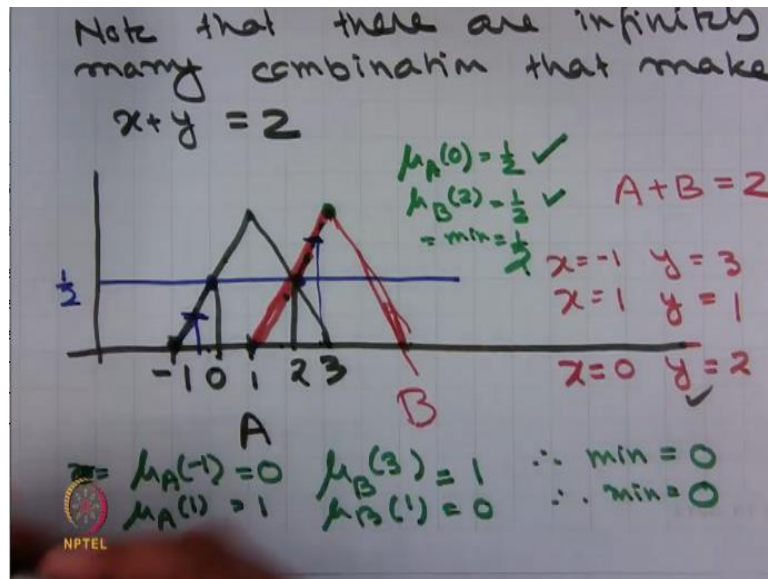 Note that there are infinitely
many combination that make
x+y = 2
μA(0) = 1/2 ✓
μB(2) = 1/2 ✓
= min = 1/2
A+B = 2
x=-1 y=3
x=1 y=1
x=0 y=2
✓
1/2
-1 0 1 2 3
A
B
μA(-1) = 0 μB(3) = 1 ∴ min = 0
μA(1) = 1 μB(1) = 0 ∴ min = 0
NPTEL